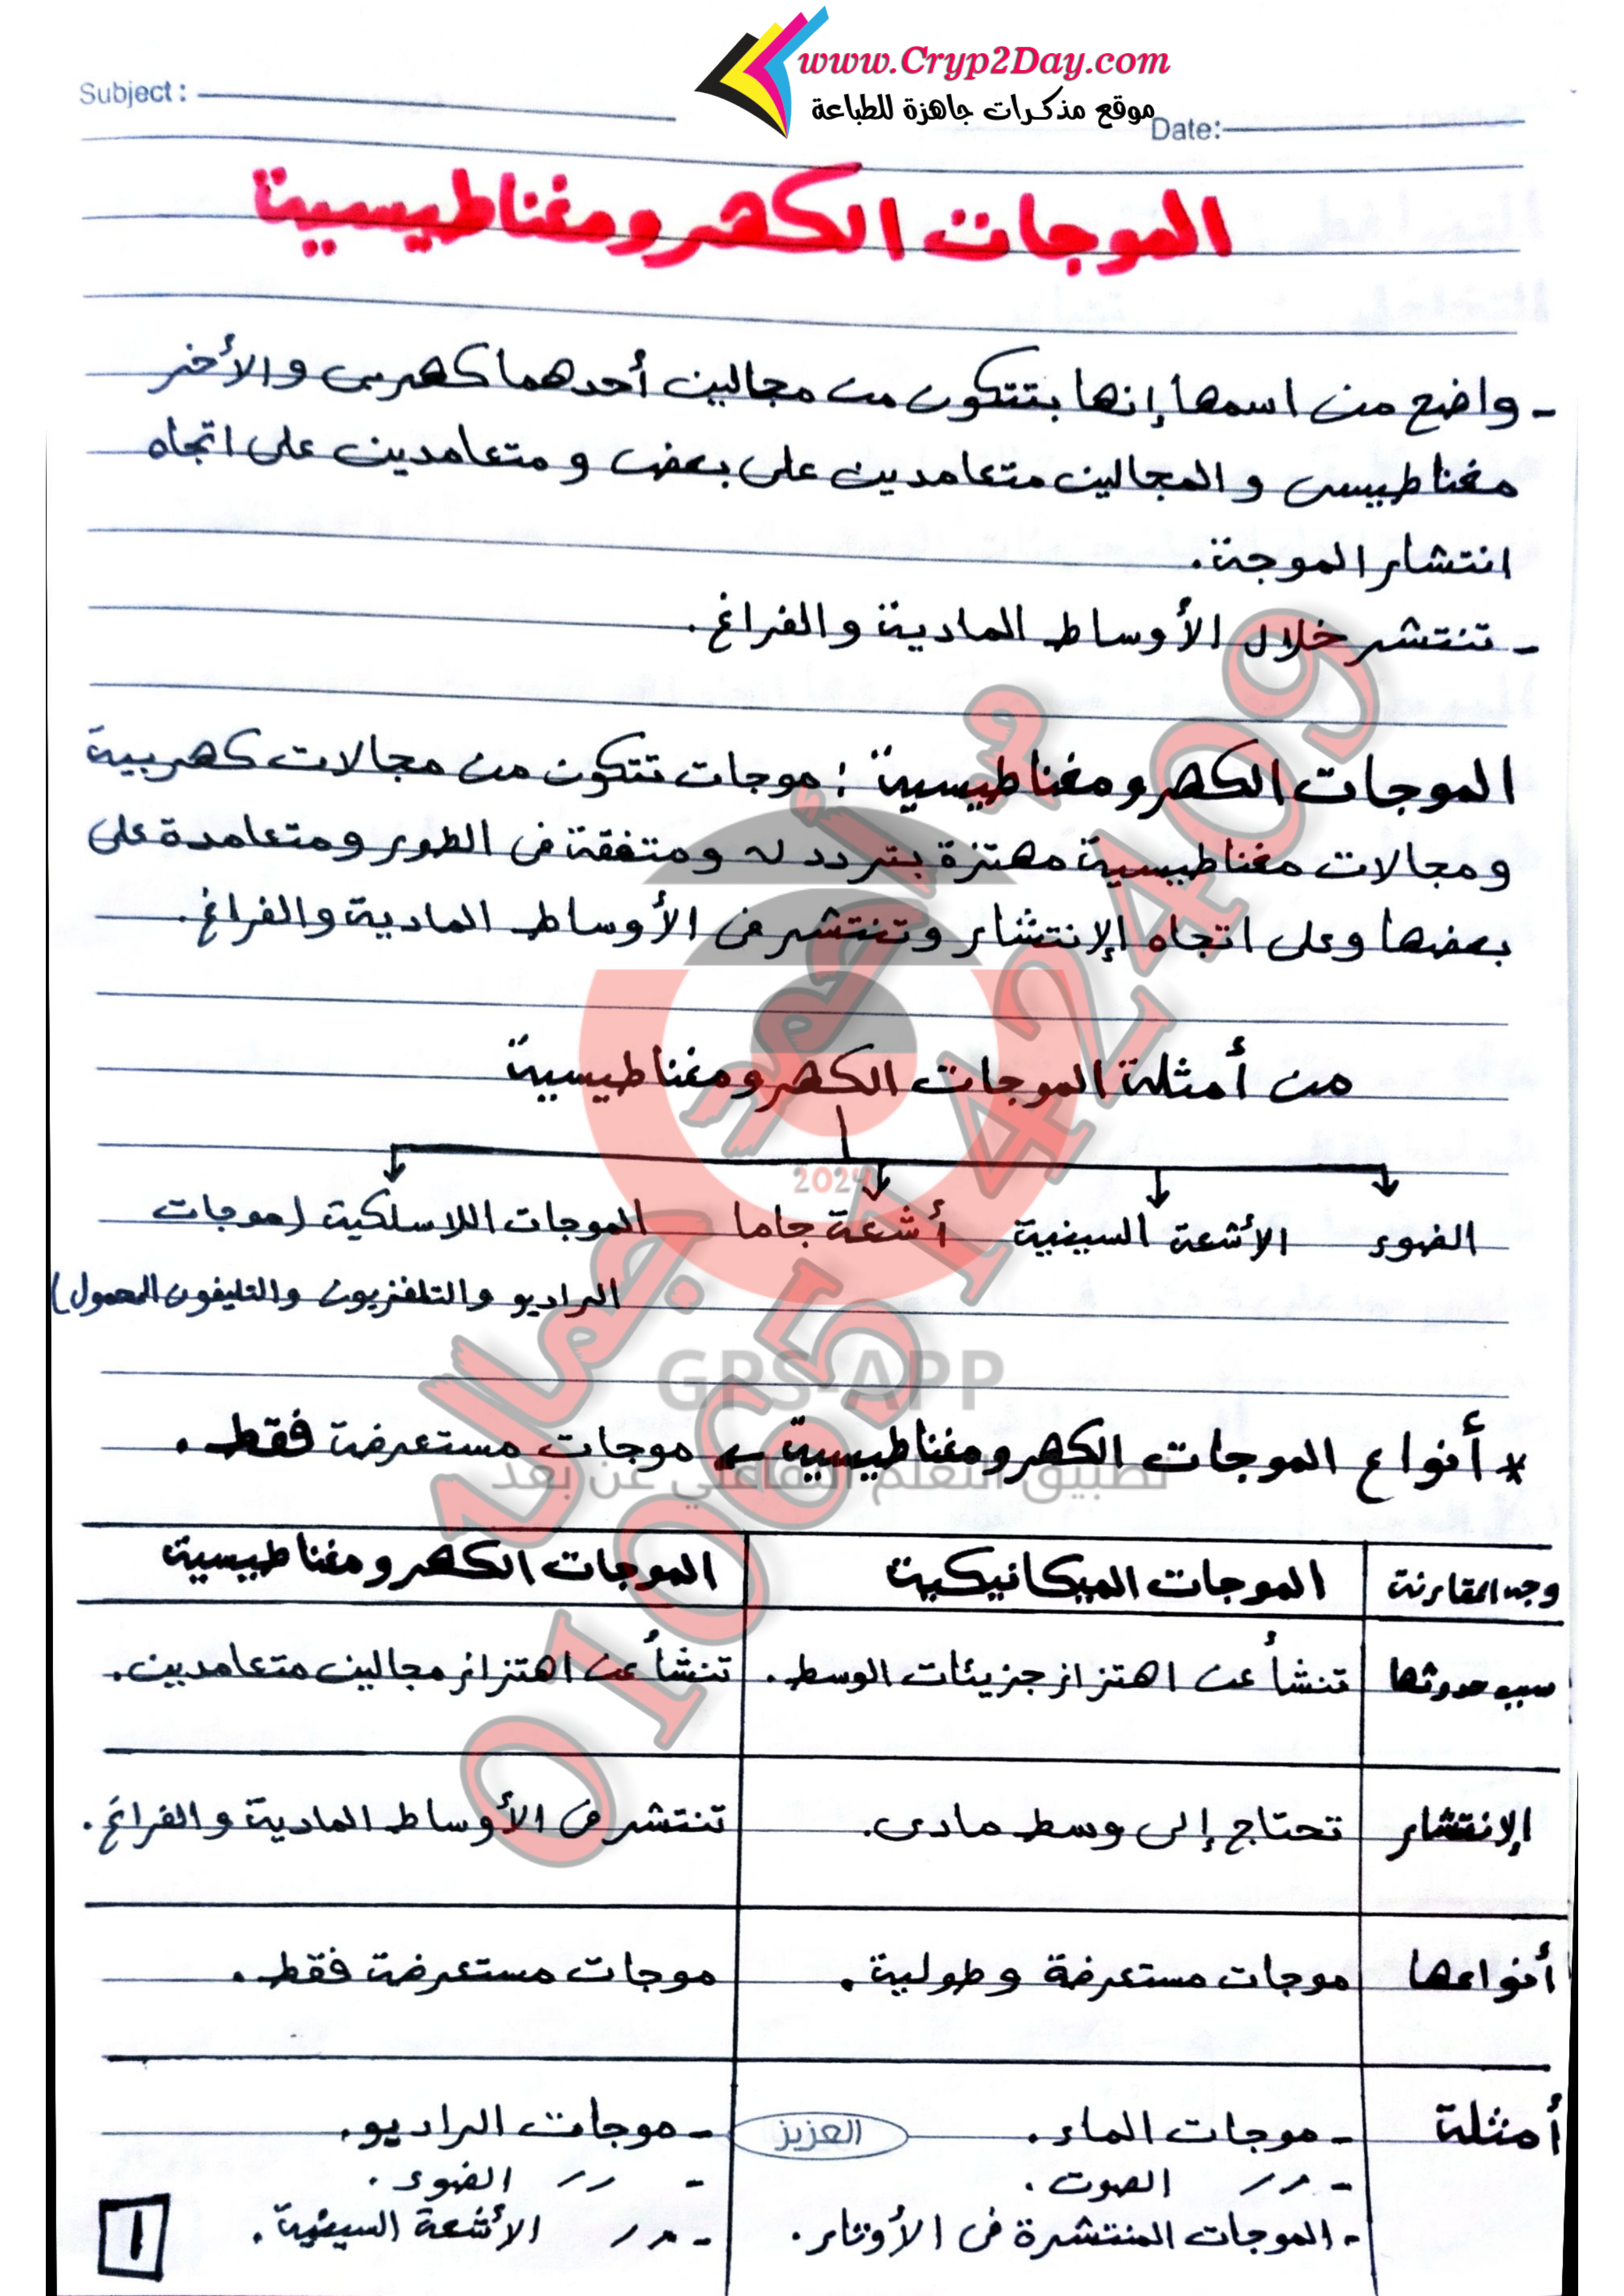 www.Cryp2Day.com
موقع مذكرات جاهزة للطباعة
Subject :
Date:
الموجات الكهرومغناطيسية
- واضح من اسمها إنها بتتكون من مجالين أحدهما كهربى والأخر
مغناطيسى والمجالين متعامدين على بعض و متعامدين على اتجاه
انتشار الموجة.
- تنتشر خلال الأوساط المادية والفراغ.
الموجات الكهرومغناطيسية : موجات تتكون من مجالات كهربية
ومجالات مغناطيسية مهتزة بتردد له ومتفقة فى الطور ومتعامدة على
بعضها وعلى اتجاه الإنتشار وتنتشر فى الأوساط المادية والفراغ.
من أمثلة الموجات الكهرومغناطيسية
2024
الضوء    الأشعة السينية    أشعة جاما    الموجات اللاسلكية (موجات
الراديو والتلفزيون والتليفون المحمول)
GPS-APP
* أنواع الموجات الكهرومغناطيسية ← موجات مستعرضة فقط.
تطبيق التعلم التفاعلي عن بعد
وجه المقارنة    الموجات الميكانيكية    الموجات الكهرومغناطيسية
سبب حدوثها    تنشأ عن اهتزاز جزيئات الوسط.    تنشأ عن اهتزاز مجالين متعامدين.
الإنتشار    تحتاج إلى وسط مادى.    تنتشر فى الأوساط المادية والفراغ.
أنواعها    موجات مستعرضة وطولية.    موجات مستعرضة فقط.
أمثلة    - موجات الماء.    - موجات الراديو.
العزيز
- // الصوت.    - // الضوء.
- الموجات المنتشرة فى الأوتار.    - // الأشعة السينية.
1
م/ أحمد جمال
01065142409